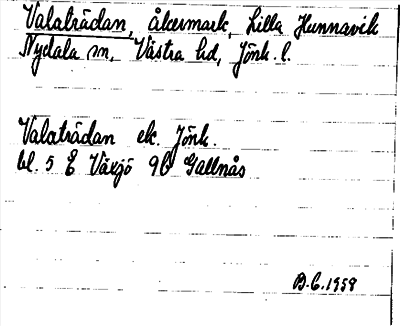 Valaträdan, åkermark, Lilla Hunnavik
Nydala sn, Västra hd, Jönk. l.
Valaträdan ek. Jönk.
bl. 5 E Växjö 9b Gallnås
B.C. 1958